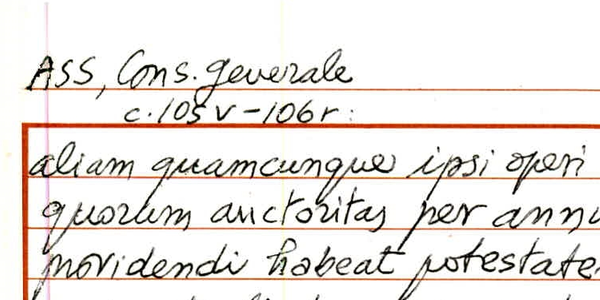 ASS, Cons. generale
c. 105v-106r:
aliam quamcunque ipsi operi
quorum auctoritas per annu
providendi habeat potestate